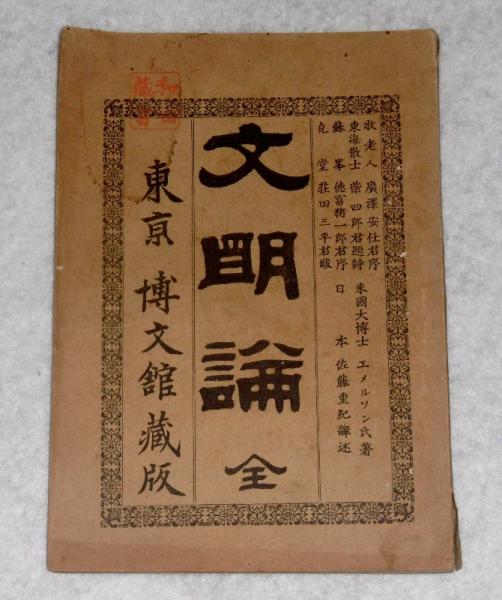 牧老人 廣澤安任君序
東海散士 柴四郎君題詩
蘇峯 德富猪一郎君序
克堂 莊田三平君跋
米國大博士 エメルソン氏著
日本 佐藤重紀譯述
文明論 全
東京 博文館藏版